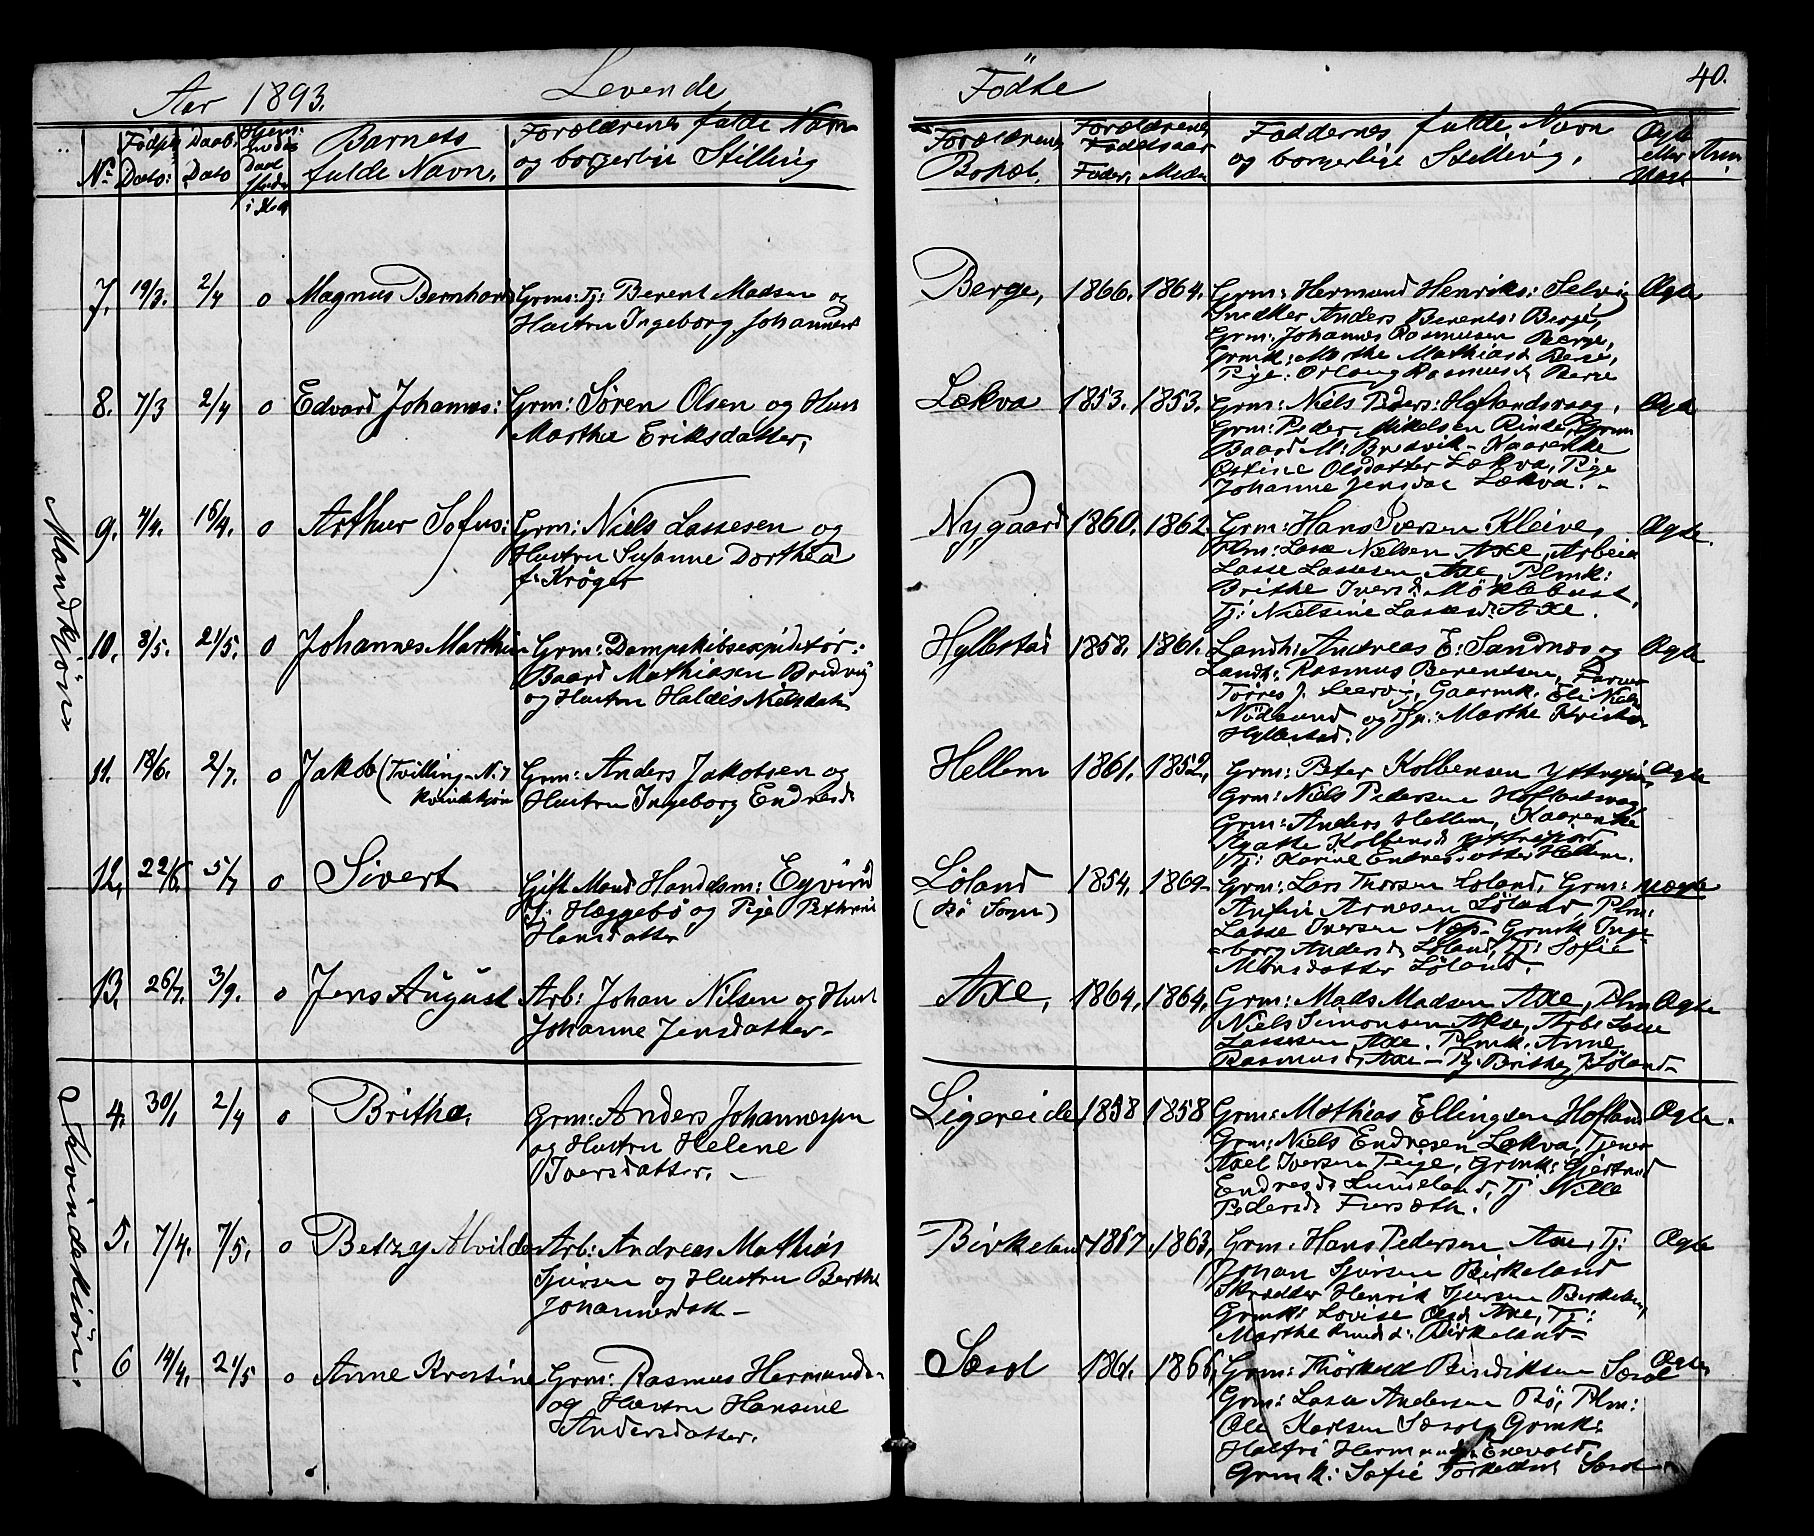 Aar 1893. Levende Fødte 40.
No Døds Dato: Daab. Dato
Barnets fulde Navn.
Forældrenes fulde Navn og borgerlige Stilling
Forældrenes Bopæl.
Forældrenes Fødselsaar Fader. Moder
Faddernes fulde Navn og borgerlige Stilling.
Ægte eller Uægt
Anm.
Mandkjøn
7. 19/3. 2/4 0 Magnus Bernhard
Grms: Tj: Berent Madsen og
Hustru Ingeborg Johannes
Berge, 1866. 1864.
Grm: Hermund Henriks: Selvig
Snedker Anders Berents: Berge,
Grm: Johannes Rasmusen Berge,
Grmk: Marthe Mathiasd Berge,
Pige: Rasmusd Berge
Ægte
8. 7/3 2/4 0 Edvard Johannes:
Grm: Søren Olsen og Hust
Marthe Eriksdatter,
Lækva 1853. 1853.
Grm: Niels Peders: Hoflandsvaag,
Grm: Peder Mikelsen Rinde, Grm
Baard M: Bredvik - Kaarenke
Olsdatter Lækva, Pige
Johanne Jensdat Lækva. -
Ægte
9. 4/4. 16/4. 0 Arthur Sofus:
Grm: Niels Lassesen og
Hustru Susanne Dorthea
f: Krøger
Nygaard 1860. 1862.
Grm: Hans Iversen Kleive,
Plm: Lasse Nielsen Axe, Arbeid
Lasse Lassesen Axe, Plmk:
Brithe Iversd Möklebust,
Tj: Nielsine Lassesd: Axe.
Ægte.
10. 8/5. 21/5. 0 Johannes Marthin
Grm: Dampskibsexpiditør:
Baard Mathiasen Bredvig
og Hustru Haldis Nielsdatr
Hyllestad 1858. 1861.
Landh: Andreas E. Sandnes og
Landh: Rasmus Berentsen,
Torres J. Leervog, Gaarmk. Eli Niels
Nödsund og Pge: Marthe Kristi
Hyllestad.
Ægte
11. 18/6. 2/7. 0 Jakob (Tvilling - N: 7
Kvindekjøn
Grm: Anders Jakobsen og
Hustru Ingeborg Endresd:
Hellem 1861. 1852,
Grm: Peter Kolbensen Yttrefjor
Grm: Niels Pedersen Hoflandsvag,
Grm: Anders Hellem, Kaarenke
Agatte Kolbensd Yttrefjord
Tj: Karine Endresdatter Hellem.
Ægte
12, 22/6. 5/7 0 Sivert
Gift Mand Handelsm: Eyvind
J: Hæggebö og Pige Pethrine
Hansdatter
Løland 1854, 1869-
(Bö Sogn)
Grm: Lars Thorsen Loland, Grm:
Anfin Arnesen Löland, Plm:
Lasse Iversen Næs - Grmk Inge-
-borg Andersd Löland, Tj: Sofie
Mönsdatter Löland.
Uægte
13. 26/7. 3/9. 0 Jens August
Arb: Johan Nilsen og Hust
Johanne Jensdatter -
Axe, 1864, 1864,
Grm: Mads Madsen Axe, Plm
Niels Simonsen Akse, Arb: Lasse
Lassesen Axe, Plmk: Anne
Rasmusd, Axe - Pg: Brithe J: Löland -
Ægte
Kvindekjön.
4. 30/1 2/4 0 Brithe,
Grm: Anders Johannesen
og Hustru Helene
Iversdatter, -
Ligereide 1858 1858
Grm: Mathias Ellingsen Hofland
Grm: Niels Endresen Lækva, Tjener
Axel Iversen Teije, Grmk: Gjertrud
Endresd: Lundeland, Tj Nille
Pedersd: Fursæth.
Ægte.
5. 7/4. 7/5. 0 Betzy Alvilde
Arb: Andreas Mathias
Sjursen og Hustru Berthe
Johannesdatt -
Birkeland 1857. 1863,
Grm. Hans Pedersen Axe, Tj:
Johan Sjursen Birkeland
Skrædder Henrik Sjursen Birkeland,
Grmk: Lovise Olsd Axe, Tj:
Marthe Knudsd: Birkeland -
Ægte
6 14/4. 21/5 0 Anne Kristine
Grm: Rasmus Hermunds.
og Hustru Hansine
Andersdatter.
Sæsol 1861. 1866,
Grm: Thörkild Bendiksen Sæsol
Grm: Lasse Andersen Bö, Plm:
Ole Karlsen Sæsol, Grmk:
Halfri Hermundsd: Enevold,
Grmk: Sofie Torkeldsd Sæsol
Ægte